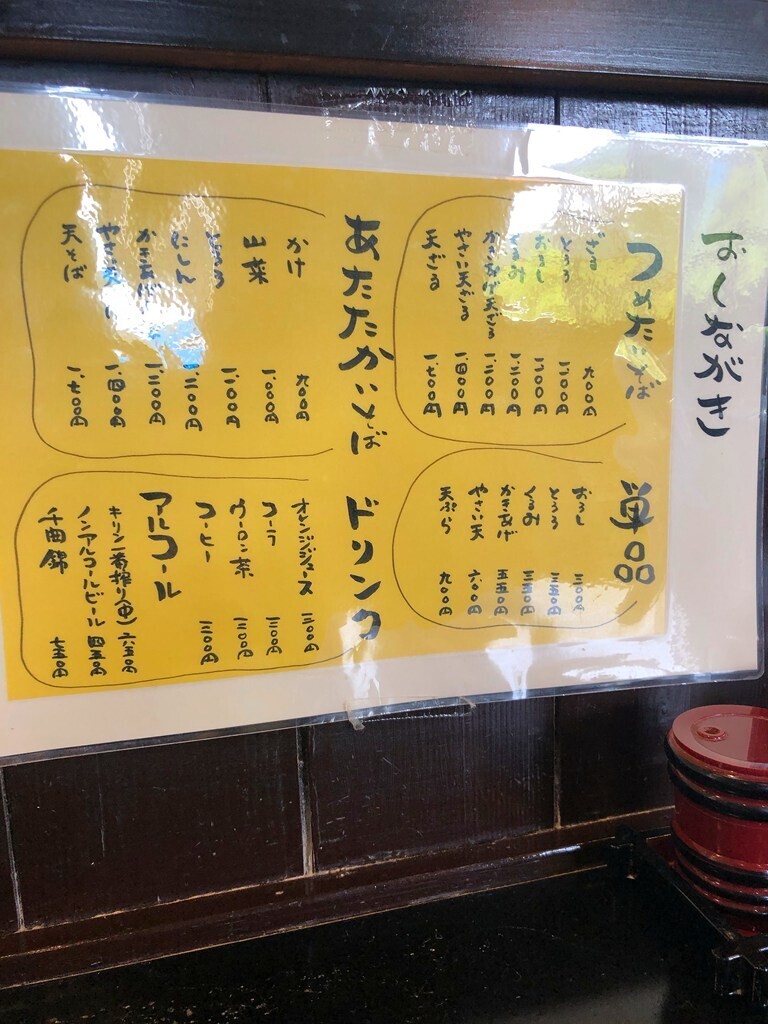 おしながき
つめたいそば
ざる 九〇〇円
とろろ 一、一〇〇円
おろし 一、一〇〇円
くるみ 一、二〇〇円
かきあげ天ざる 一、三〇〇円
やさい天ざる 一、四〇〇円
天ざる 一、七〇〇円
単品
おろし 三〇〇円
とろろ 三五〇円
くるみ 三五〇円
かきあげ 五五〇円
やさい天 六〇〇円
天ぷら 九〇〇円
あたたかいそば
かけ 九〇〇円
山菜 一、〇〇〇円
とろろ 一、一〇〇円
にしん
かきあげ
一、四〇〇円
天そば 一、七〇〇円
ドリンク
オレンジジュース 三〇〇円
コーラ 三〇〇円
ウーロン茶 三〇〇円
コーヒー 三〇〇円
アルコール
キリン一番搾り(中) 六五〇円
ノンアルコールビール 四五〇円
千曲錦 七五〇円